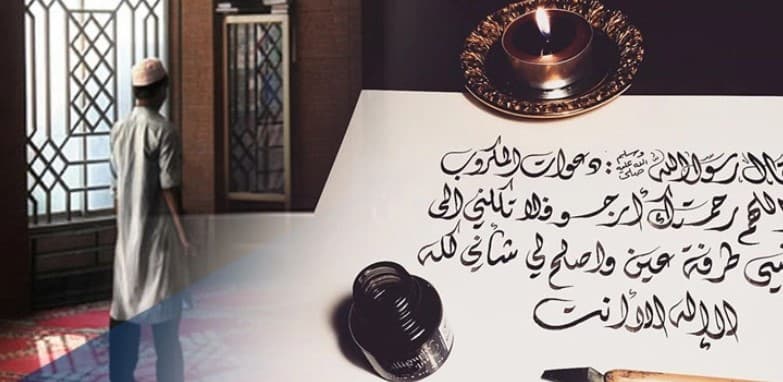 قال رسول الله صلى الله عليه وسلم : دعوات المكروب
اللهم رحمتك أرجو فلا تكلني الى
نفسي طرفة عين واصلح لي شأني كله
لا إله إلا أنت